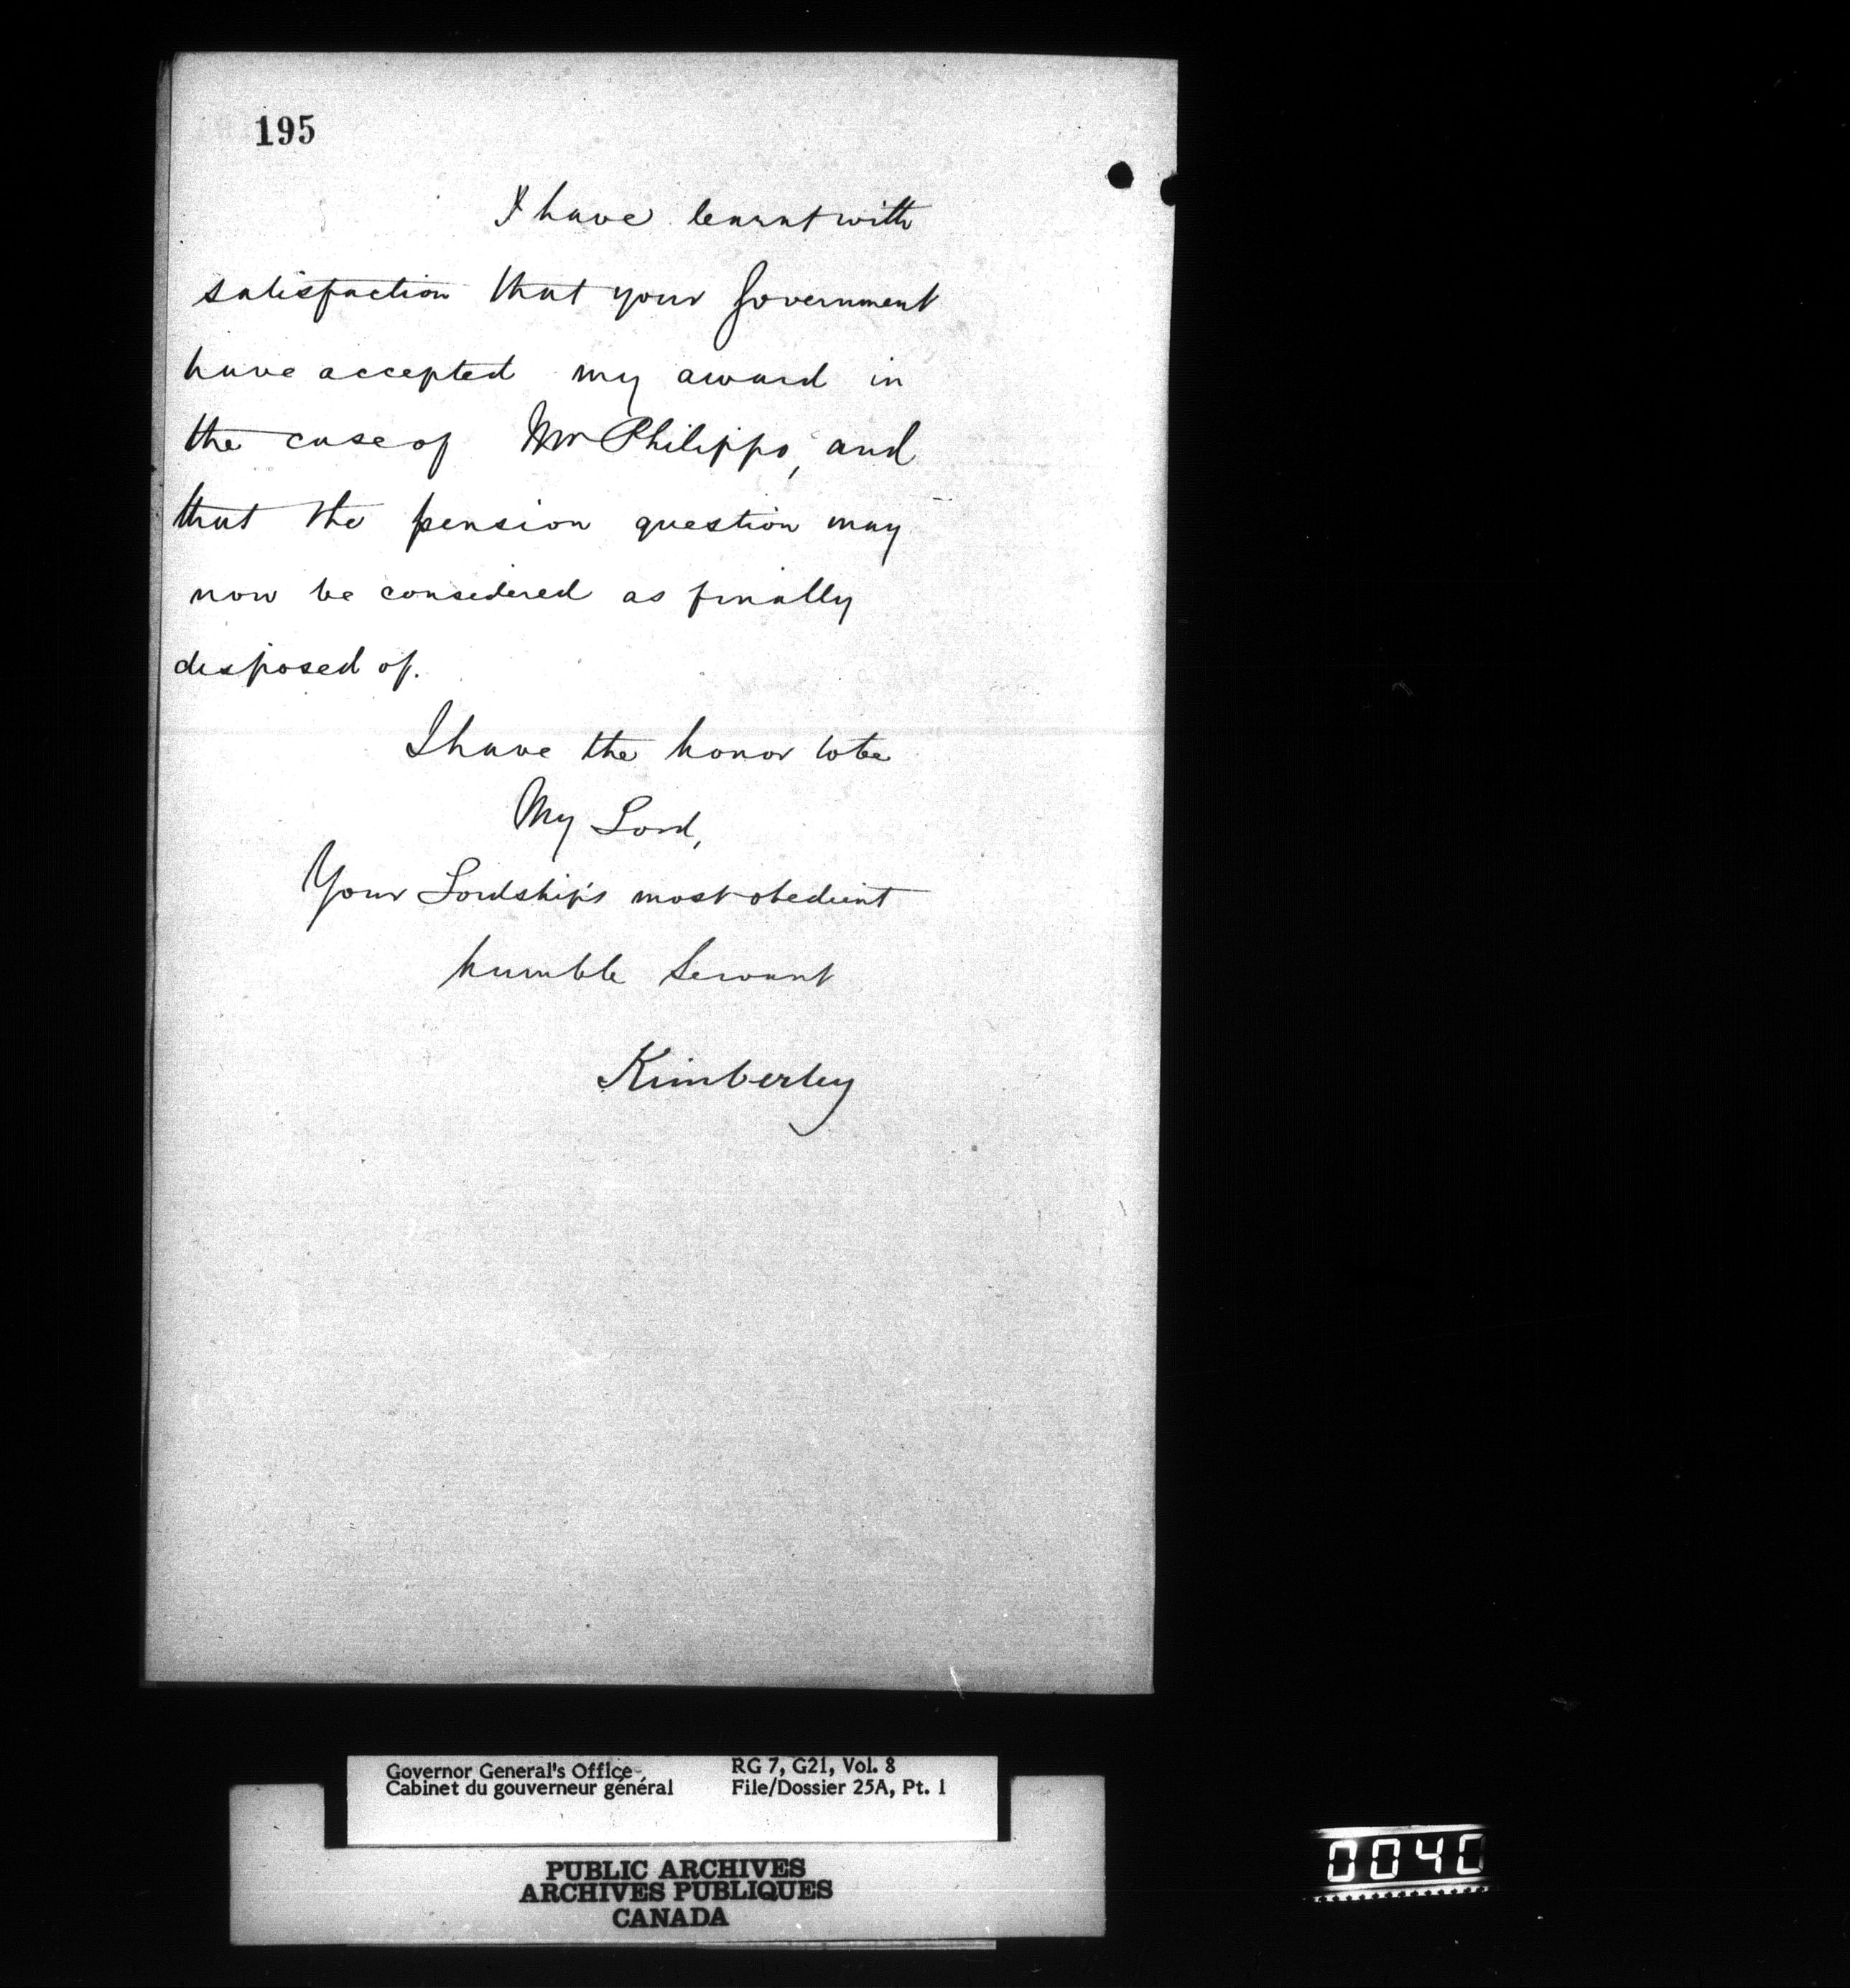 195
I have learnt with
satisfaction that your Government
have accepted my award in
the case of Mr Philippo, and
that the pension question may
now be considered as finally
disposed of.
I have the honor to be
My Lord,
Your Lordship's most obedient
humble Servant
Kimberley
Governor General's Office
Cabinet du gouverneur général
RG 7, G21, Vol. 8
File/Dossier 25A, Pt. 1
PUBLIC ARCHIVES
ARCHIVES PUBLIQUES
CANADA
0040